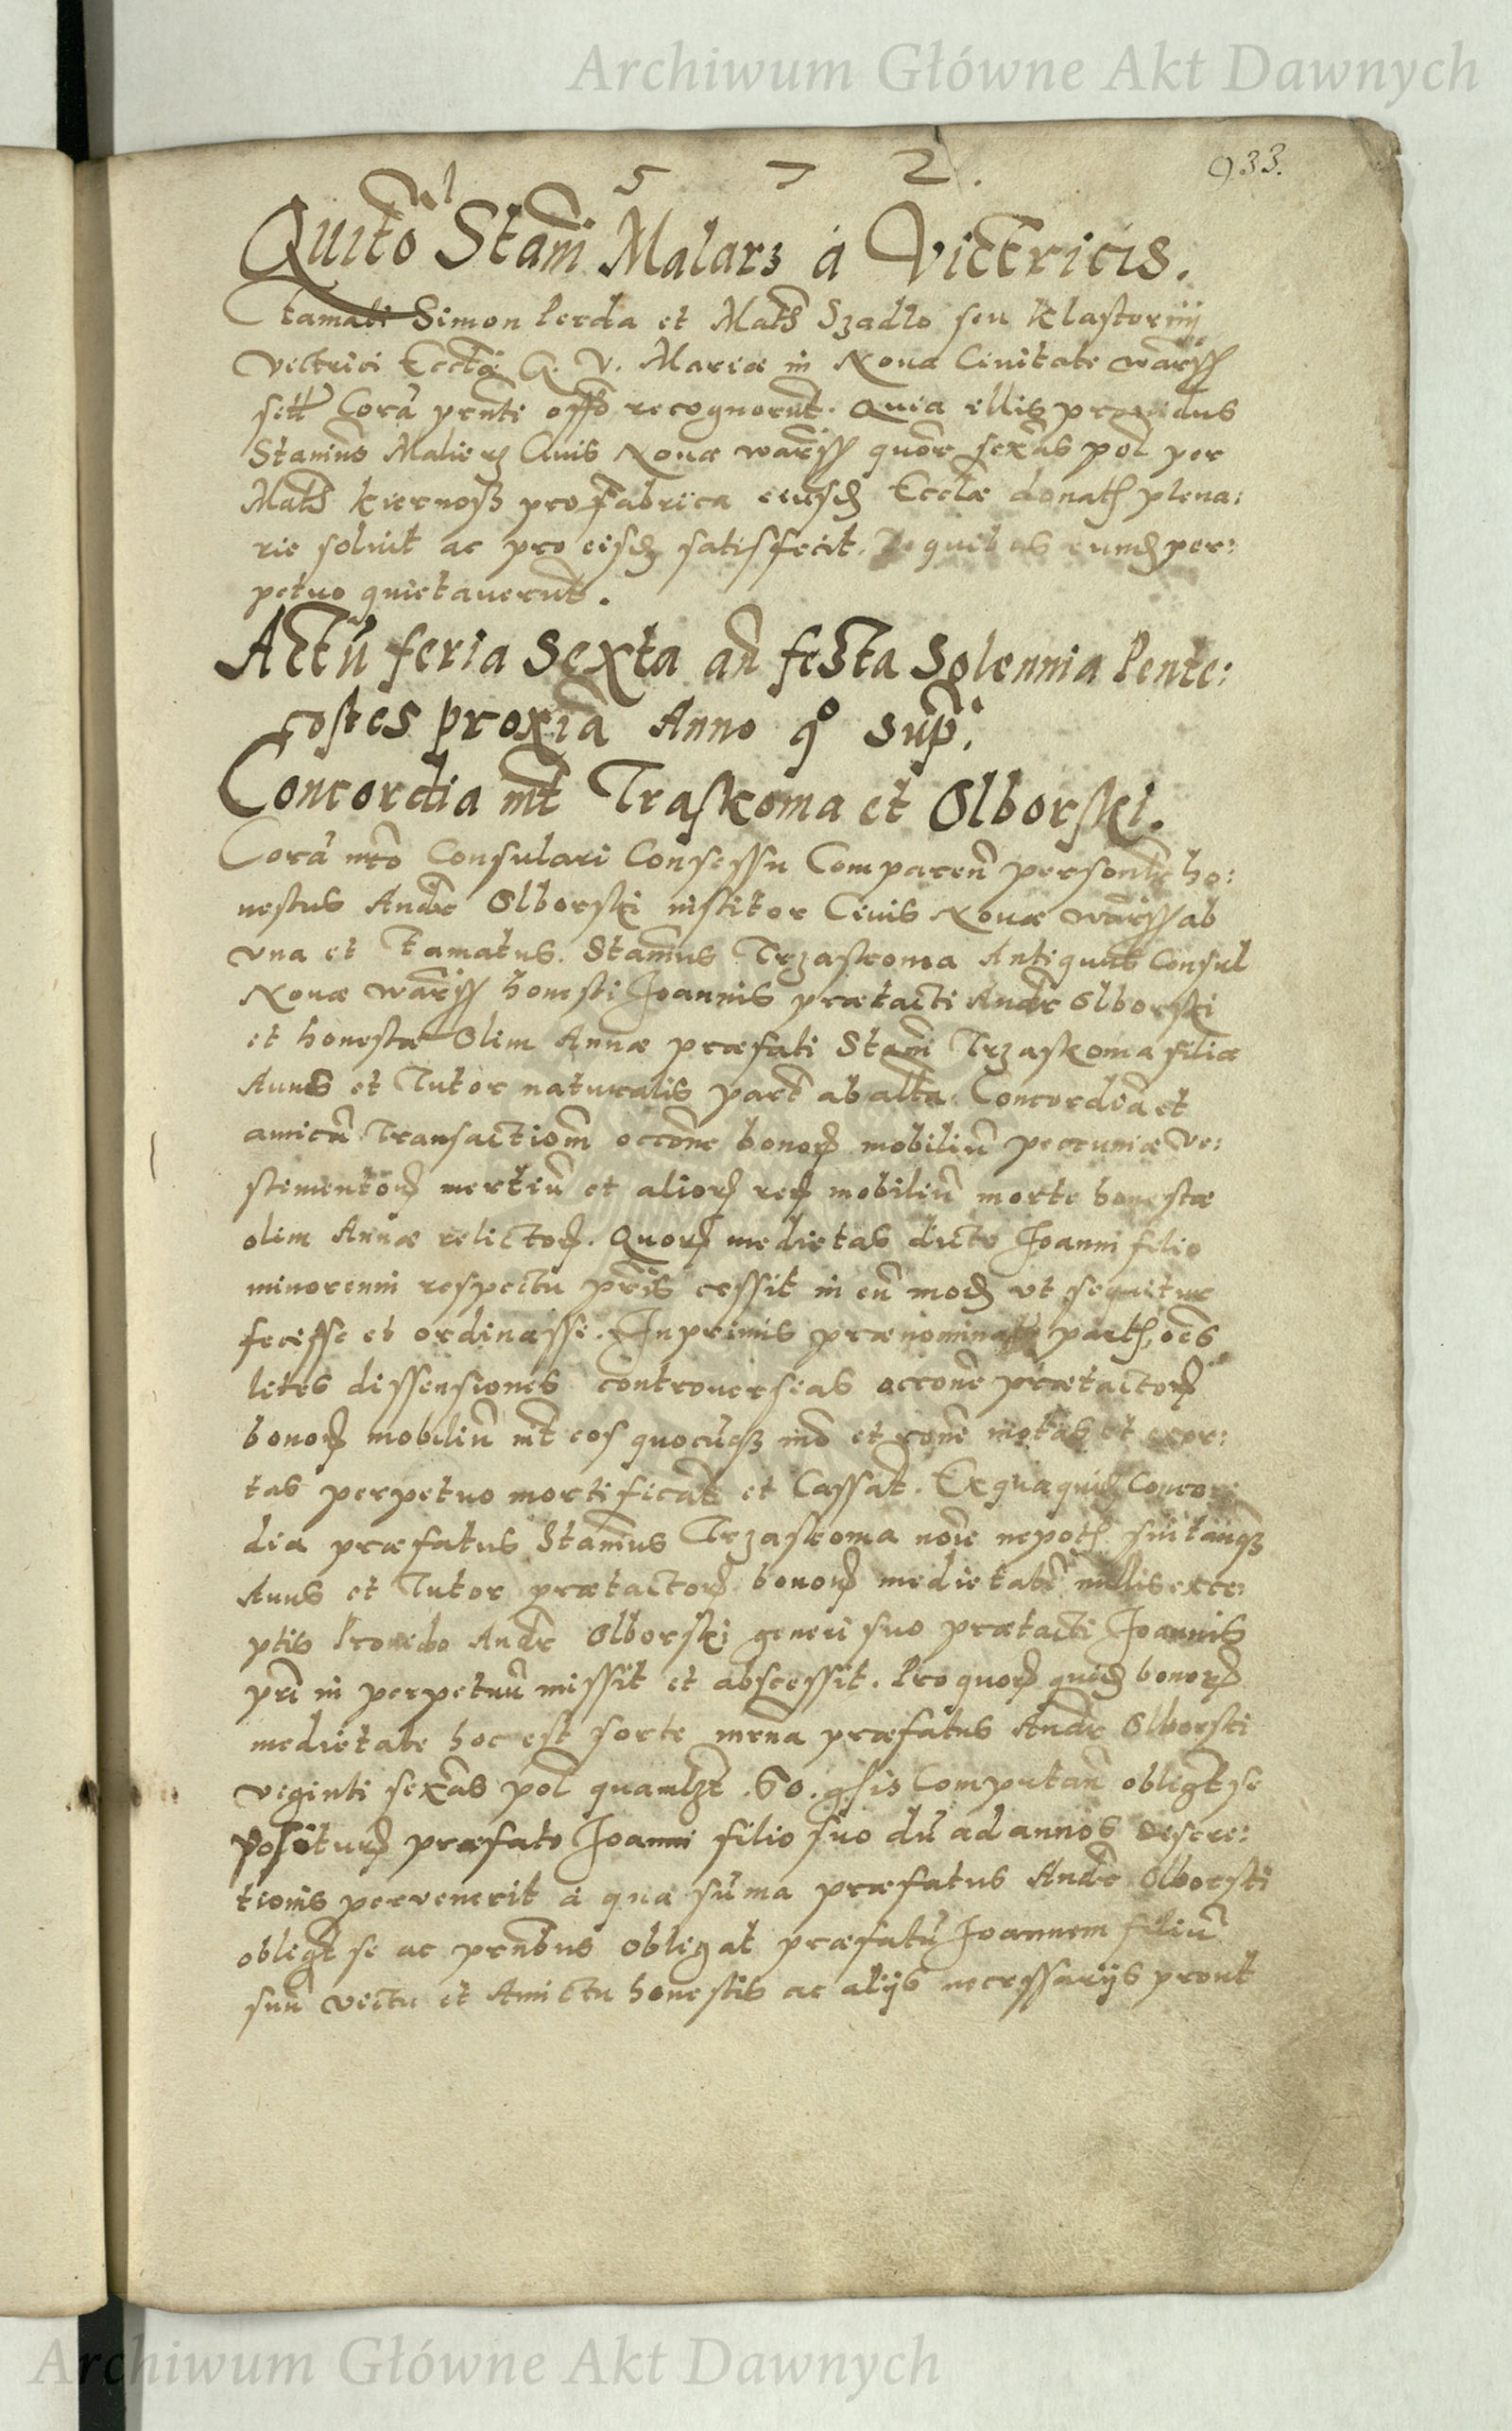 Archiwum Główne Akt Dawnych
5 7 2.
933.
Quitõ Stam̃ Malarz a Victricis.
Ctamati Simon Perda et Mats Szadlo seu Klastorny
victrici Eccłæ B. V. Mariæ in Nova Civitate Warsch
Corã prnti offõ recognoverũt. Quia illis providus
Staniñs Malierz Civis Novæ Warsch quõr sexãs pol per
Mats Kiernoss pro fabrica eiusd Eccłæ donatũ plena:
rie solvit ac pro eisd satisfecit. De quibus eund per:
petuo quietaverũt.
Actũ feria Sexta añ festa Solennia Pente:
costes proxiã Anno qº sup.
Concordia int̃ Traskoma et Olborski.
Corã nrõ Consulari Consessu Comparẽn personlr ho:
nestus Andr Olborski institor Civis Novæ Warsch ab
una et ftamatus Staniñs Trzaskoma Antiquus Consul
Novæ Warsch honesti Joannis prætacti Andr Olborski
et honestæ Olim Annæ præfati Stani Trzaskoma filiæ
Auus et Tutor naturalis part̃ ab altã Concordiã et
amicã Transactiom̃ occõne bonor mobiliũ pecuniæ ve:
stimentor mertiũ et alior rer mobiliũ morte honestæ
olim Annæ relictor. Quor medietas dicto Joanni filio
minorenni respectu pris cessit in eũ mod ut sequitur
fecisse et ordinasse. Inprimis prænominatæ partes oẽs
lites dissensiones controversias occõne prætactor
bonor mobiliũ int̃ eos quocũq mõ et rõne motas et exor:
tas perpetuo mortificãt et Cassãt. Ex qua quid Concor
dia præfatus Staniñs Trzaskoma nõie nepotis sui tanq
Auus et Tutor prætactor bonor medietatẽ nullis exce:
ptis Provido Andr Olborski generi suo prætacti Joannis
pri in perpetuũ missit et abscessit. Pro quor quid bonor
medietate hoc est sorte mrna præfatus Andr Olborski
viginti sexãs pol quamlzt .60. gsis Computañ obligt se
positur præfato Joanni filio suo dũ ad annos descre:
tionis pervenerit a qua sũma præfatus Andr Olborski
obligt se ac prntibus obligat præfatũ Joannem filiũ
suũ victu et Amictu honestis ac alijs necessarijs prout
Archiwum Główne Akt Dawnych